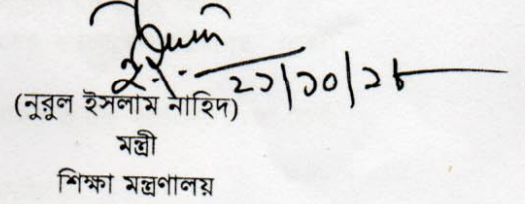 (নুরুল ইসলাম নাহিদ)
মন্ত্রী
শিক্ষা মন্ত্রণালয়